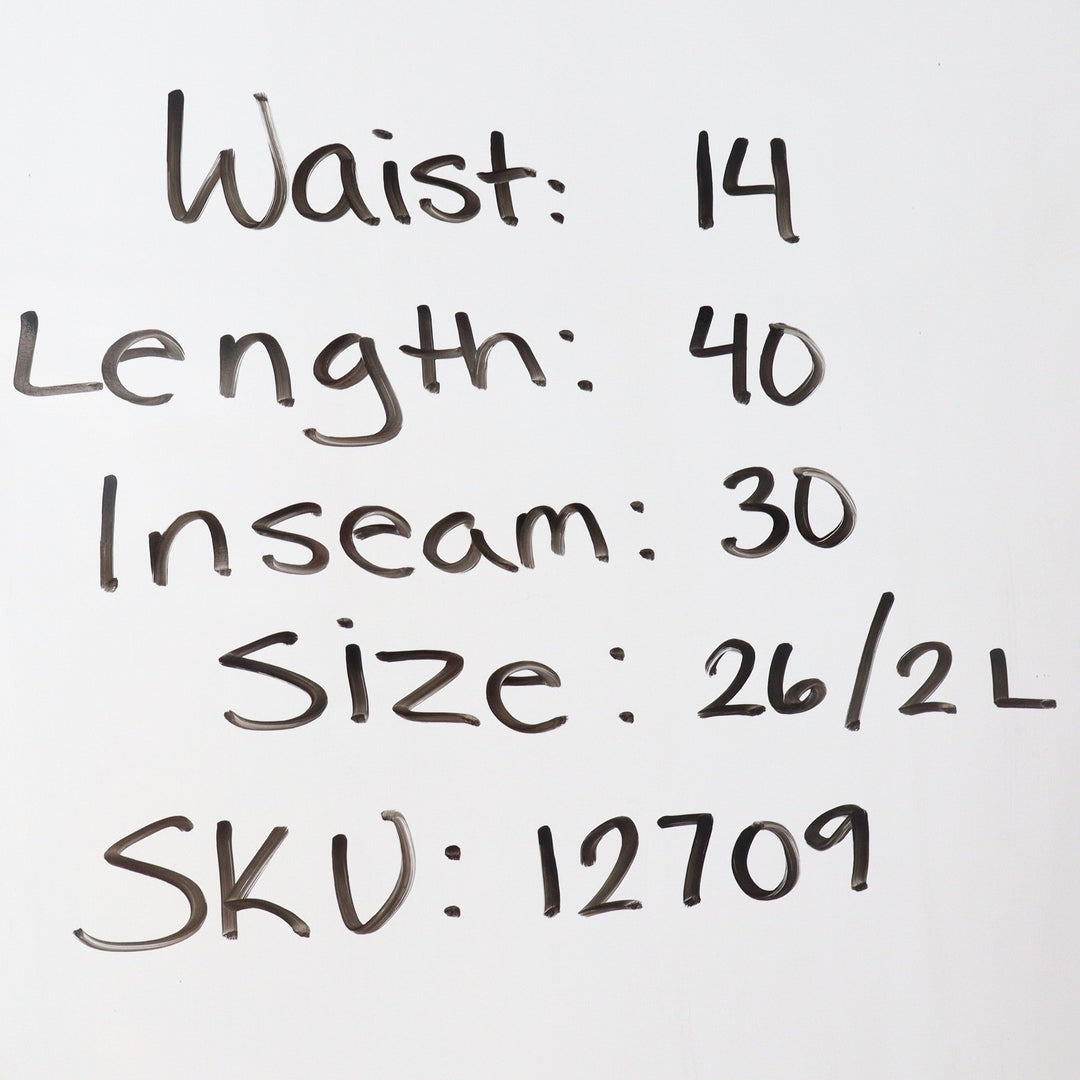 Waist: 14
Length: 40
Inseam: 30
Size: 26/2L
SKU: 12709